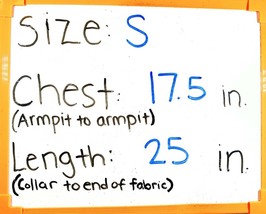 Size: S
Chest: 17.5 in.
(Armpit to armpit)
Length: 25 in.
(Collar to end of fabric)